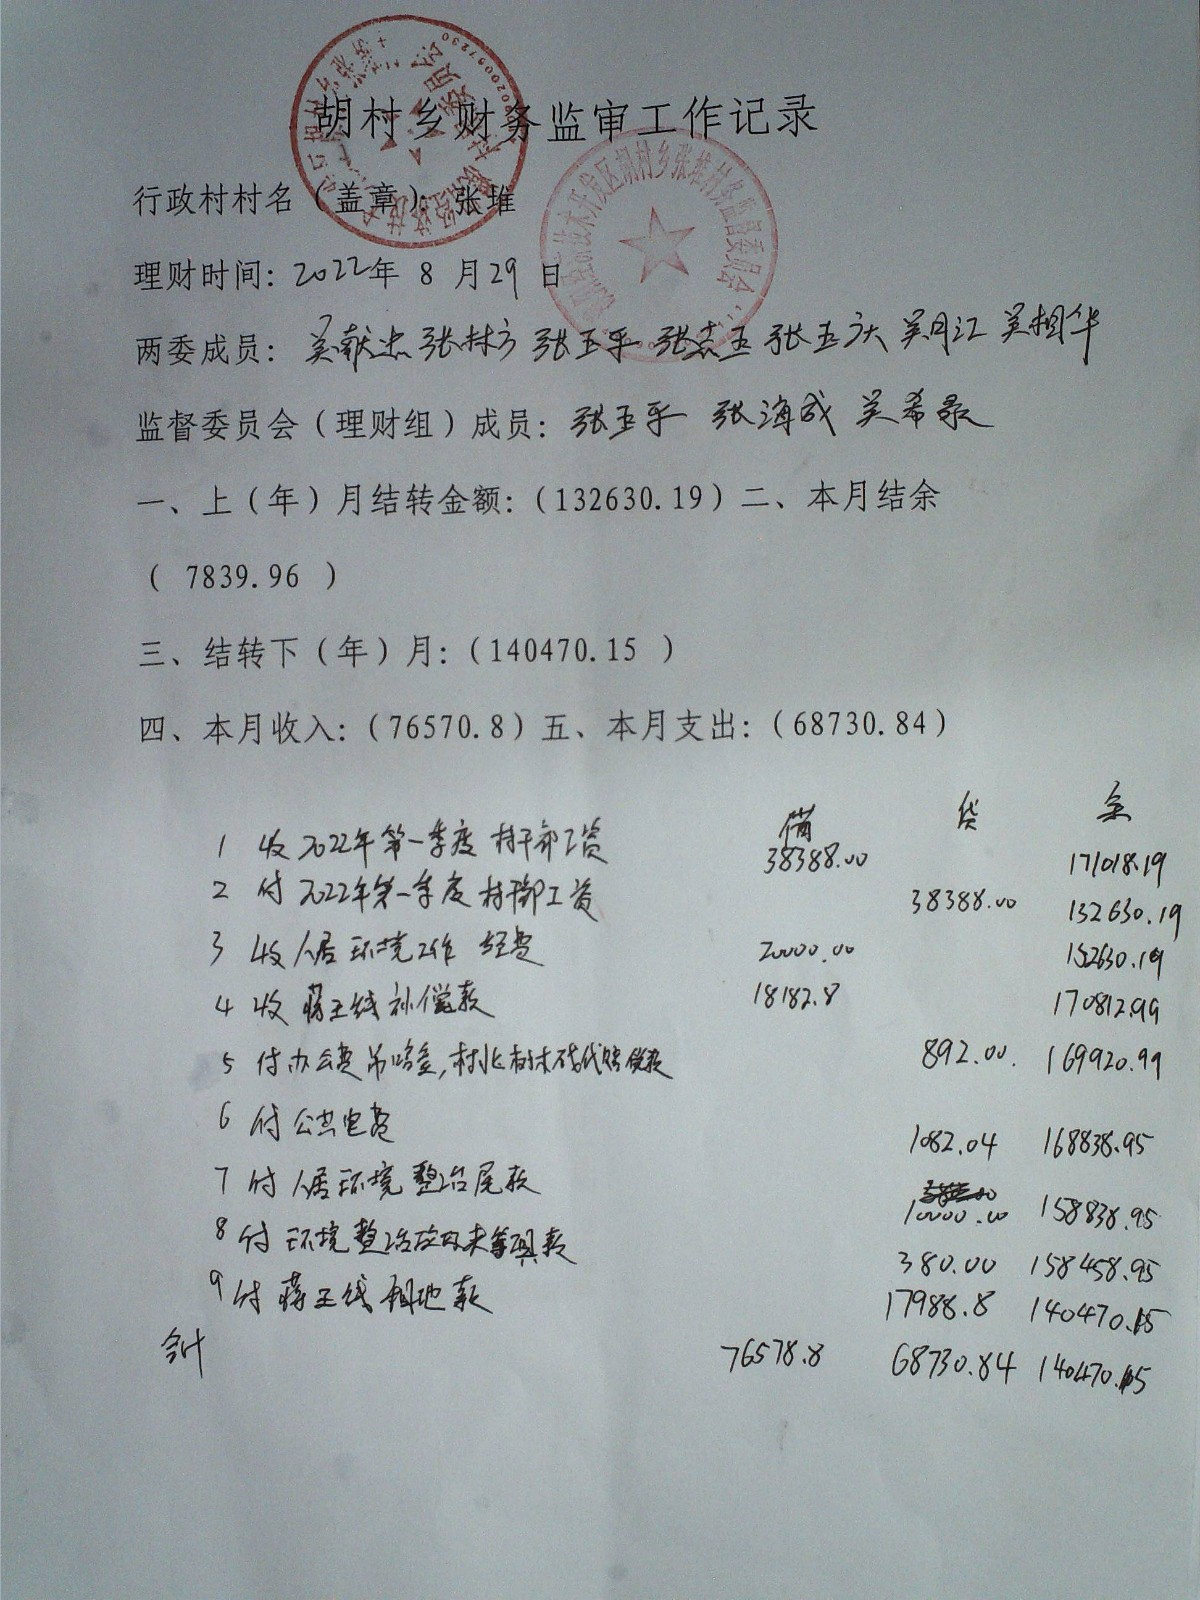 胡村乡财务监审工作记录
行政村村名（盖章）：张堆
胡村乡张堆村务监督委员会
理财时间：2022年 8 月29 日
两委成员：吴献忠 张村方 张玉乎 张志玉 张玉庆 吴月江 吴相华
监督委员会（理财组）成员：张玉乎 张海成 吴希录
一、上（年）月结转金额：（132630.19）二、本月结余
（ 7839.96 ）
三、结转下（年）月：（140470.15 ）
四、本月收入：（76570.8）五、本月支出：（68730.84）
借 贷 余
1 收2022年第一季度村干部工资 38388.00 171018.19
2 付2022年第一季度村干部工资 38388.00 132630.19
3 收人居环境工作经费 20000.00 152630.19
4 收蒋王线补偿款 18182.8 170812.99
5 付办公费 892.00. 169920.99
6 付公共电费 1082.04 168838.95
7 付人居环境整治尾款 10000.00 158838.95
8 付环境整治 款 380.00 158458.95
9 付蒋王线租地款 17988.8 140470.15
合计 76578.8 68730.84 140470.15